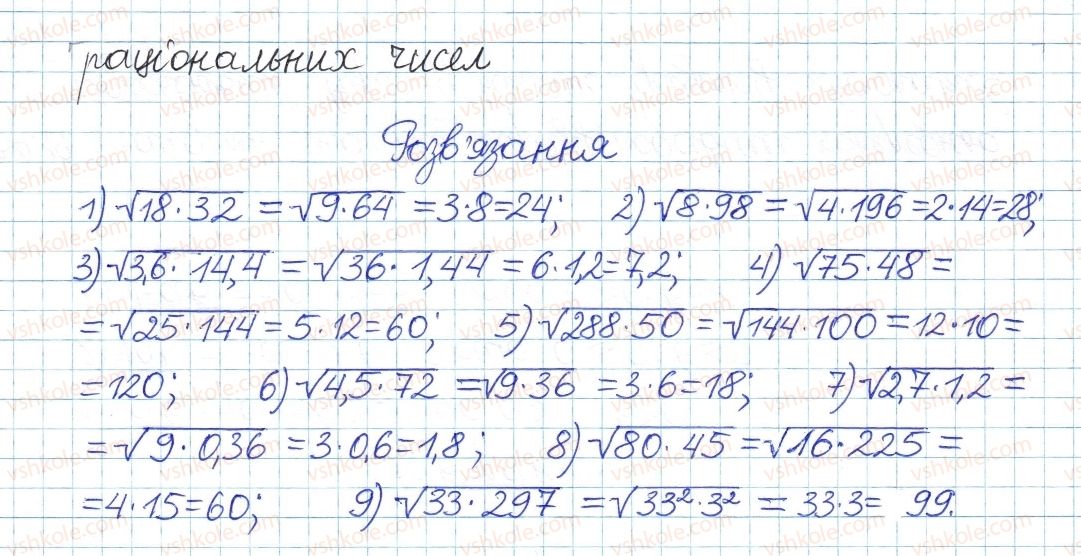 раціональних чисел
Розв'язання
1) √18·32 = √9·64 = 3·8=24; 2) √8·98 = √4·196 = 2·14=28;
3) √3,6·14,4 = √36·1,44 = 6·1,2=7,2; 4) √75·48 =
= √25·144 = 5·12=60; 5) √288·50 = √144·100 = 12·10=
=120; 6) √4,5·72 = √9·36 = 3·6=18; 7) √2,7·1,2 =
= √9·0,36 = 3·0,6=1,8; 8) √80·45 = √16·225 =
=4·15=60; 9) √33·297 = √33²·3² = 33·3= 99.